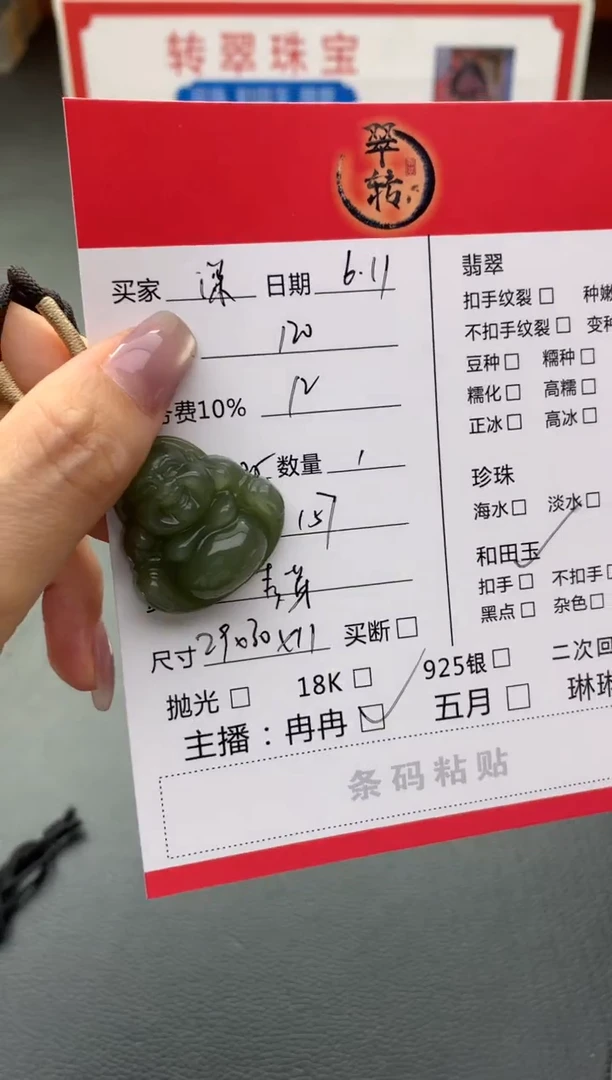 转翠珠宝
翠
转
买家 深 日期 6.11
120
费10% 12
数量 1
157
尺寸 29x30x11 买断 □
抛光 □ 18K □ 925银 □ 二次回
主播：冉冉 ☑ 五月 □ 琳琳
条码粘贴
翡翠
扣手纹裂 □ 种嫩
不扣手纹裂 □ 变种
豆种 □ 糯种 □
糯化 □ 高糯 □
正冰 □ 高冰 □
珍珠
海水 □ 淡水 □
和田玉
扣手 □ 不扣手 □
黑点 □ 杂色 □